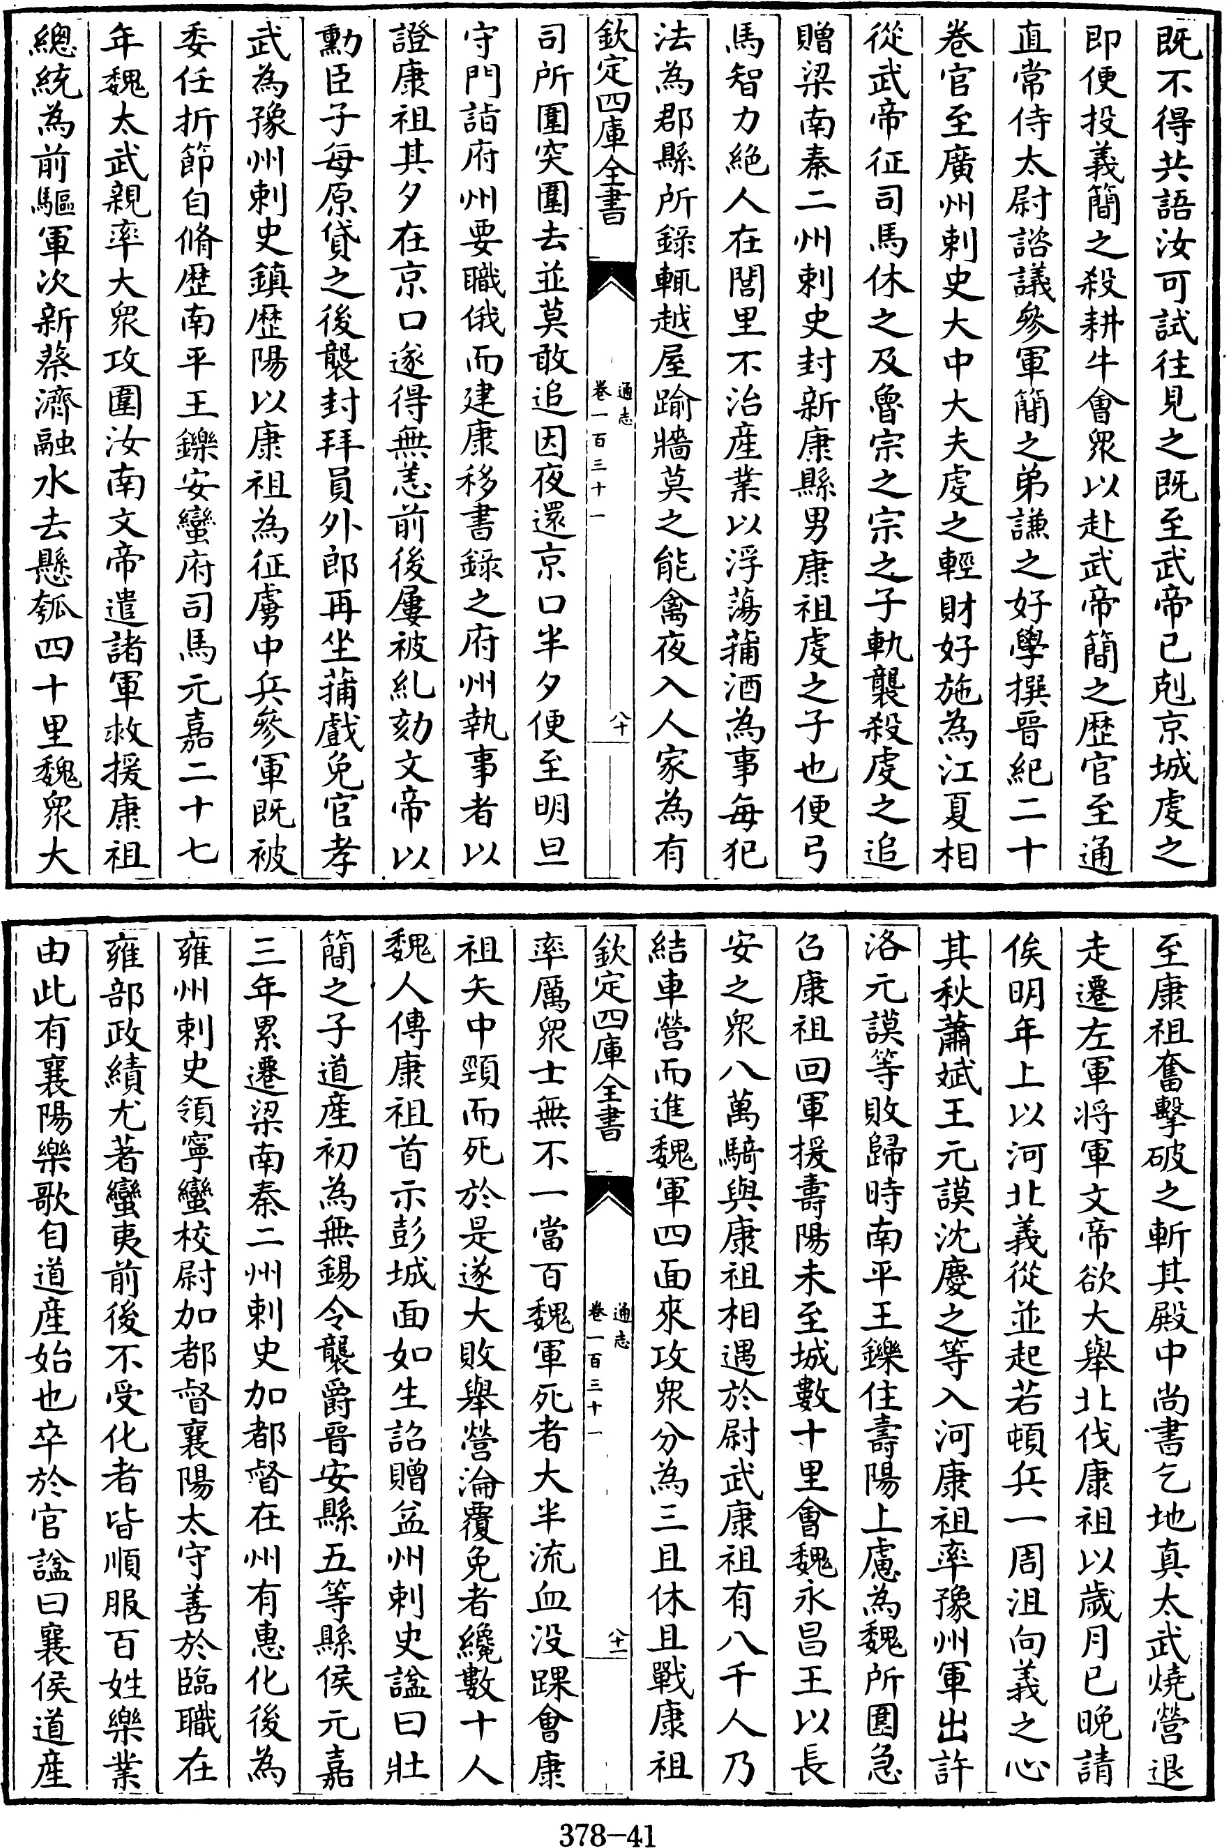 既不得共語汝可試往見之既至武帝已剋京城虔之
即便投義簡之殺耕牛會衆以赴武帝簡之歷官至通
直常侍太尉諮議參軍簡之弟謙之好學撰晉紀二十
卷官至廣州刺史大中大夫虔之輕財好施為江夏相
從武帝征司馬休之及魯宗之宗之子軌襲殺虔之追
贈梁南秦二州刺史封新康縣男康祖虔之子也便弓
馬智力絶人在閭里不治産業以浮蕩蒱酒為事每犯
法為郡縣所錄輒越屋踰牆莫之能禽夜入人家為有
欽定四庫全書
通志
卷一百三十一
八十
司所圍突圍去並莫敢追因夜還京口半夕便至明旦
守門詣府州要職俄而建康移書錄之府州執事者以
證康祖其夕在京口遂得無恙前後屢被糺劾文帝以
勳臣子每原貸之後襲封拜員外郎再坐蒱戲免官孝
武為豫州刺史鎮歷陽以康祖為征虜中兵參軍既被
委任折節自脩歷南平王鑠安蠻府司馬元嘉二十七
年魏太武親率大衆攻圍汝南文帝遣諸軍救援康祖
總統為前驅軍次新蔡濟融水去懸瓠四十里魏衆大
至康祖奮擊破之斬其殿中尚書乞地真太武燒營退
走遷左軍將軍文帝欲大舉北伐康祖以歲月已晚請
俟明年上以河北義從並起若頓兵一周沮向義之心
其秋蕭斌王元謨沈慶之等入河康祖率豫州軍出許
洛元謨等敗歸時南平王鑠住壽陽上慮為魏所圍急
召康祖回軍援壽陽未至城數十里會魏永昌王以長
安之衆八萬騎與康祖相遇於尉武康祖有八千人乃
結車營而進魏軍四面來攻衆分為三且休且戰康祖
欽定四庫全書
通志
卷一百三十一
八十一
率厲衆士無不一當百魏軍死者大半流血没踝會康
祖矢中頸而死於是遂大敗舉營淪覆免者纔數十人
魏人傳康祖首示彭城面如生詔贈益州刺史謚曰壯
簡之子道産初為無錫令襲爵晉安縣五等縣侯元嘉
三年累遷梁南秦二州刺史加都督在州有惠化後為
雍州刺史領寧蠻校尉加都督襄陽太守善於臨職在
雍部政績尤著蠻夷前後不受化者皆順服百姓樂業
由此有襄陽樂歌自道産始也卒於官謚曰襄侯道産
378-41